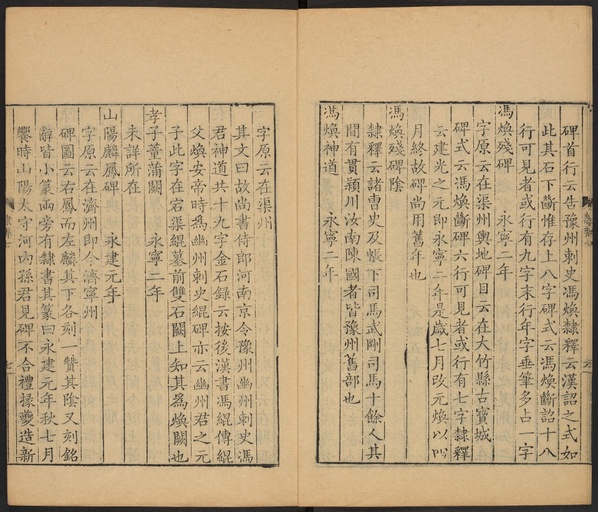 碑首行云告豫州刺史馮煥隸釋云漢詔之式如
此其石下斷惟存上八字碑式云馮煥斷詔十八
行可見者或行有九字末行年字垂筆多占一字
馮煥殘碑 永寧二年
字原云在渠州輿地碑目云在大竹縣古賨城
碑式云馮煥斷碑六行可見者或行有七字隸釋
云建光之元即永寧二年是歲七月改元煥以四
月終故碑尚用舊年也
馮煥殘碑陰
隸釋云諸曹史及帳下司馬武剛司馬十餘人其
間有貫潁川汝南陳國者皆豫州舊部也
馮煥神道 永寧二年
字原云在渠州
其文曰故尚書侍郎河南京令豫州幽州刺史馮
君神道共十九字金石錄云按後漢書馮緄傳緄
父煥安帝時為幽州刺史緄碑亦云幽州君之元
子此字在宕渠緄墓前雙石闕上知其為煥闕也
孝子董蒲闕 永寧二年
未詳所在
山陽麟鳳碑 永建元年
字原云在濟州即今濟寧州
碑圖云右鳳而左麟其下各刻一贊其陰又刻銘
辭皆小篆兩旁有隸書其篆曰永建元年秋七月
饗時山陽太守河內孫君見碑不合禮掾爕造新